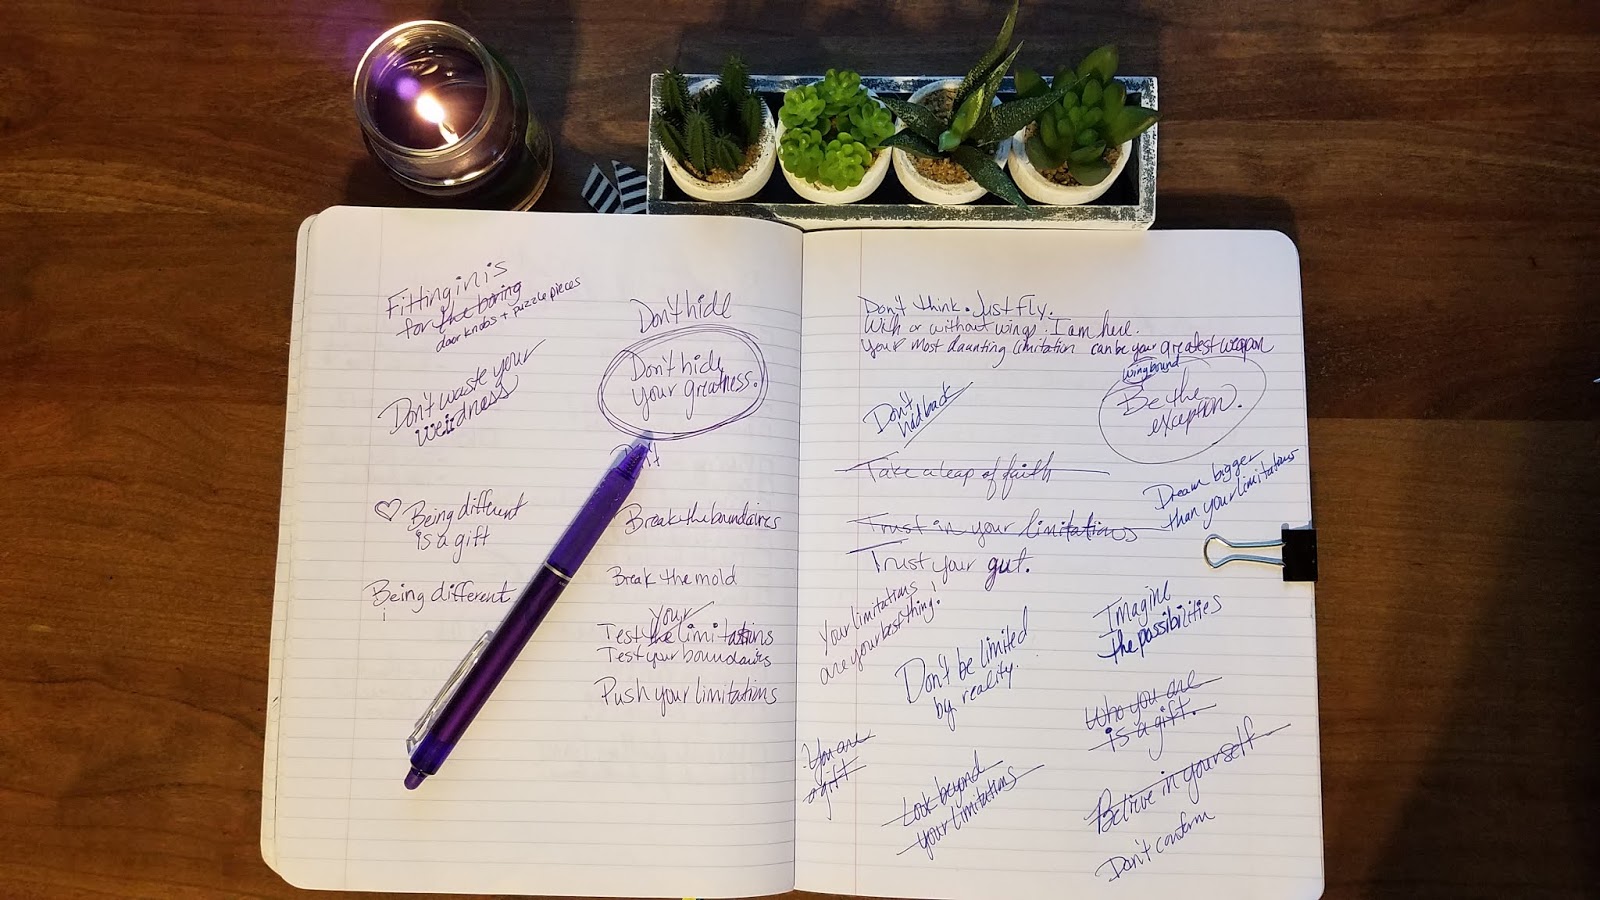 Fitting in is
for the boring
doorknobs + puzzle pieces
Don't waste your
weirdness
Being different
is a gift
Being different
i
Don't hide
Don't hide
your greatness.
Break the boundaires
Break the mold
your
Test the limitations
Test your boundaires
Push your limitations
Don't think. Just fly.
With or without wings. I am here.
Your most daunting limitation can be your greatest weapon
wingbound
Be the
exception.
Don't
Take a leap of faith
Dream bigger
than your limitations
Trust in your limitations
Trust your gut.
Your limitations
are your best thing!
Don't be limited
by reality.
Imagine
the possibilities
Who you are
is a gift.
You are
a gift
Look beyond
your limitations
Believe in yourself
Don't conform